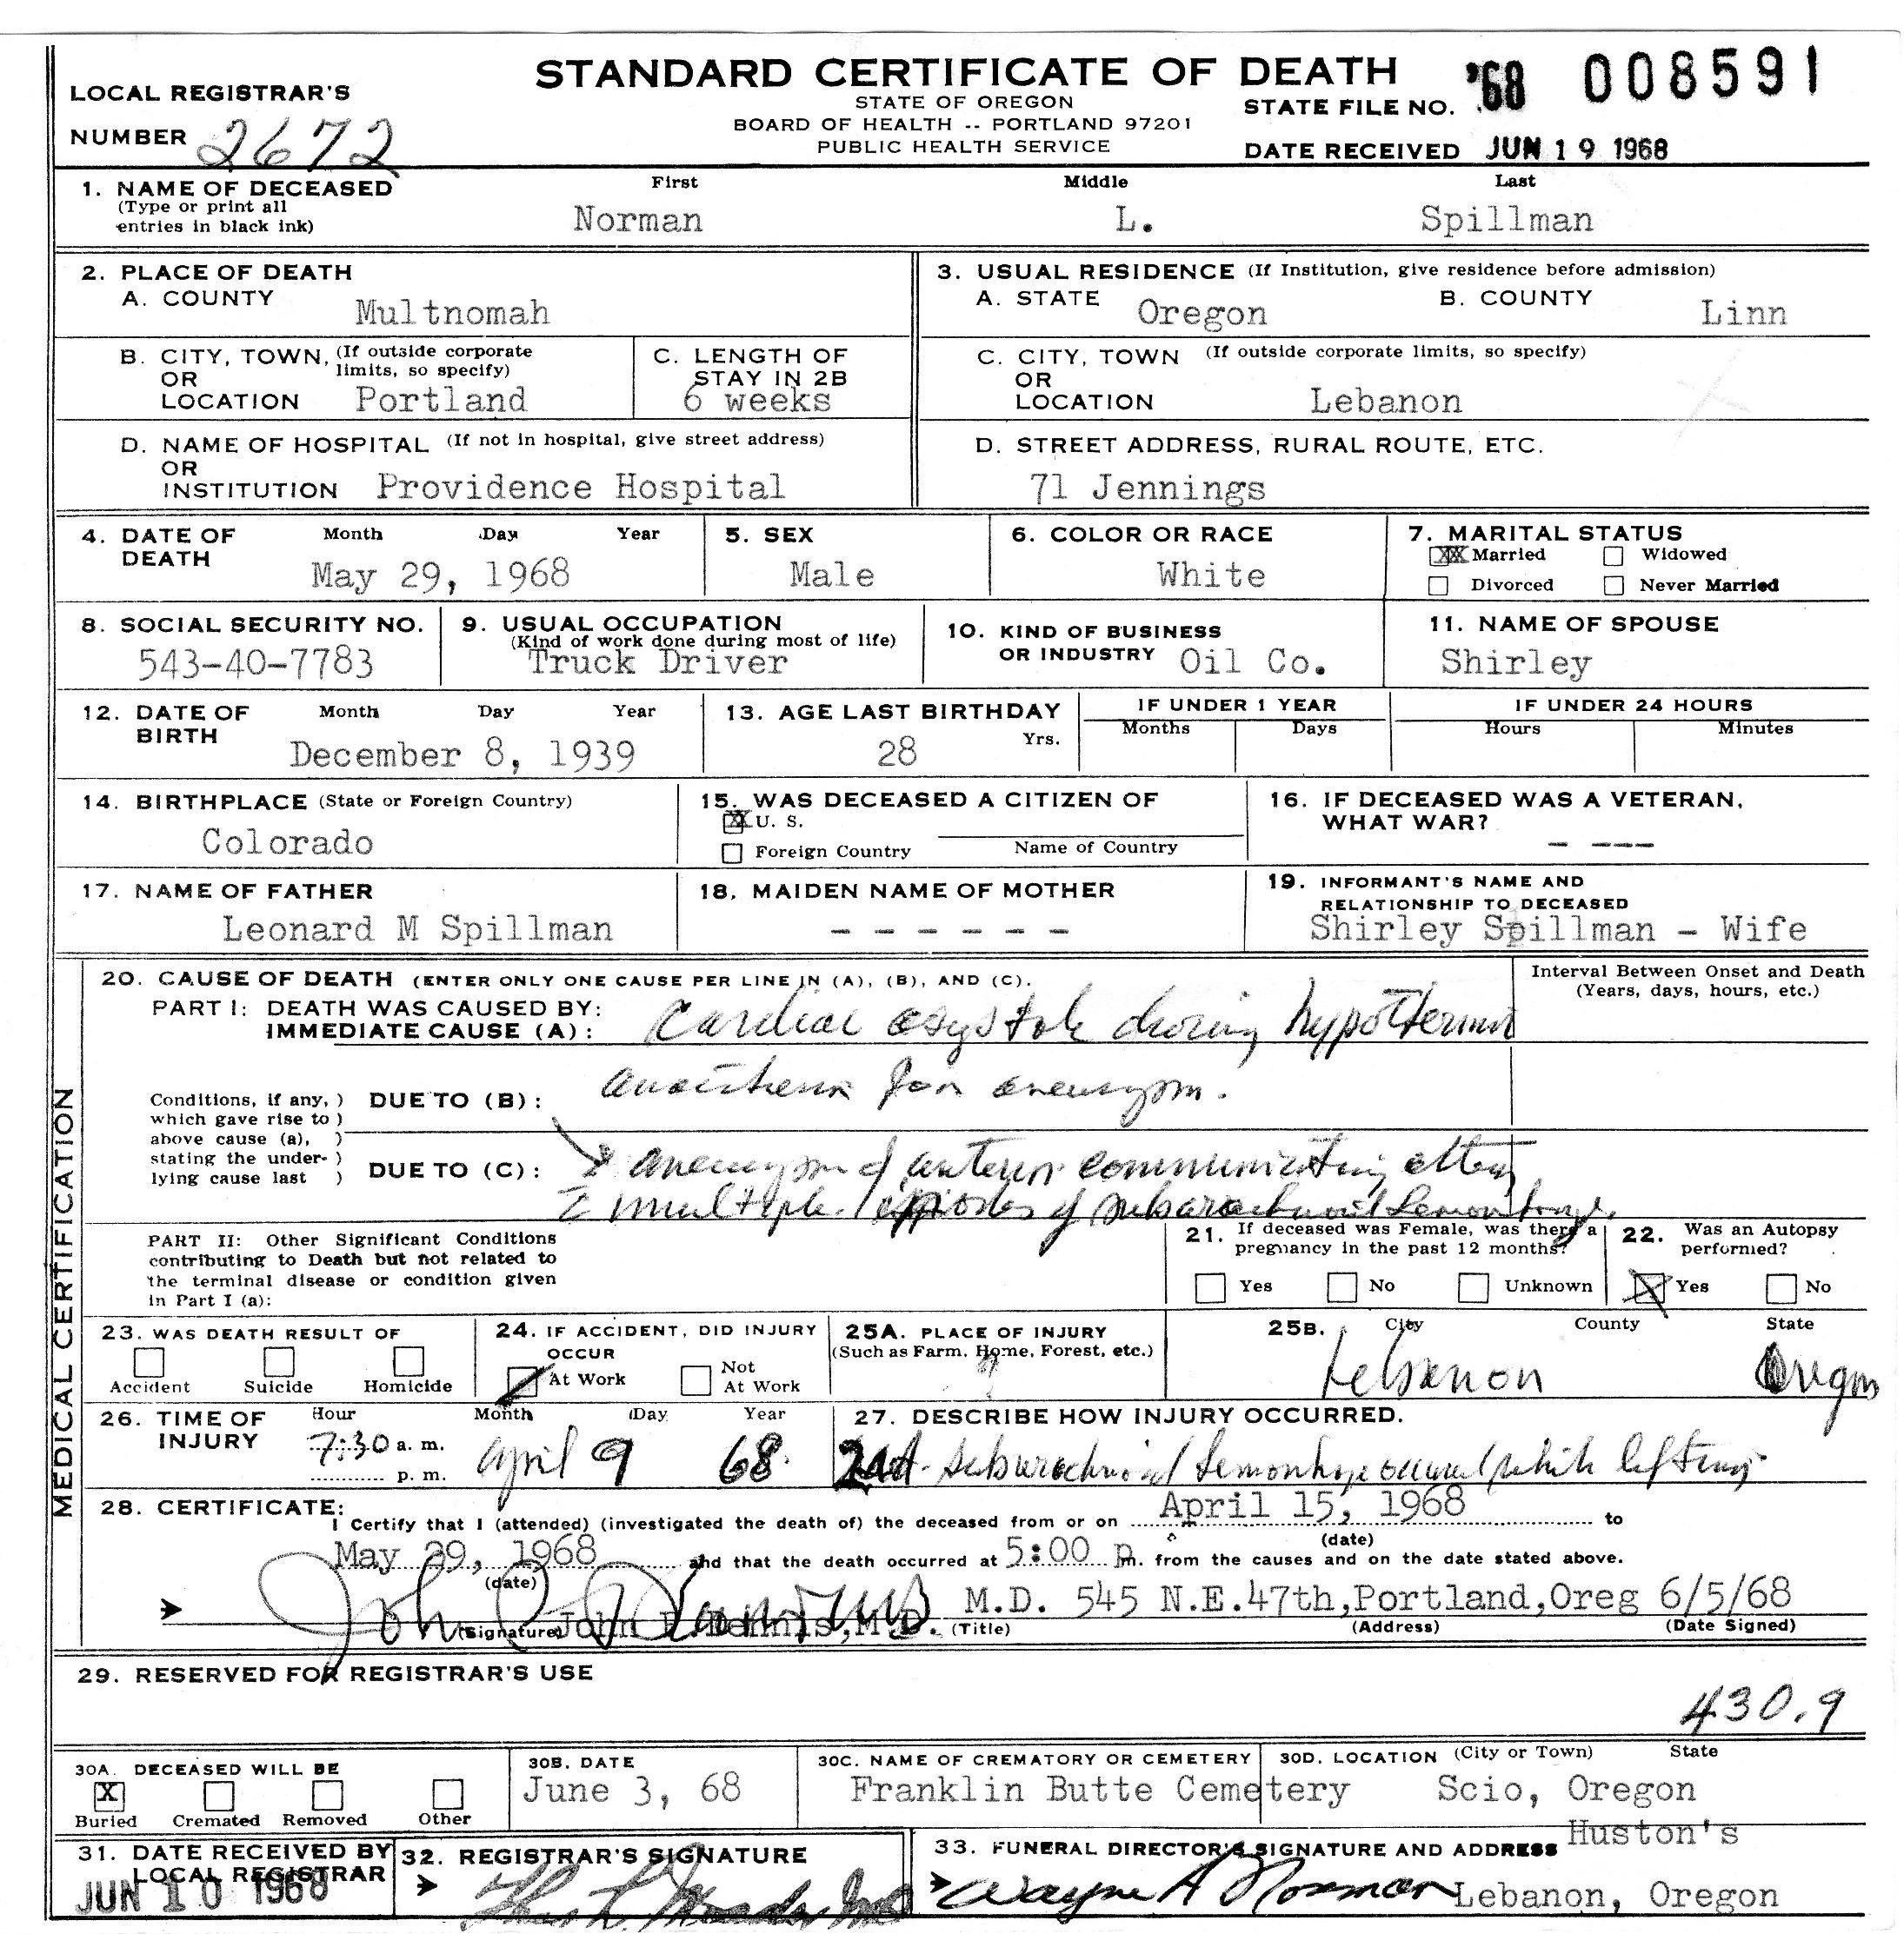 STANDARD CERTIFICATE OF DEATH
STATE OF OREGON
BOARD OF HEALTH -- PORTLAND 97201
PUBLIC HEALTH SERVICE
LOCAL REGISTRAR'S
NUMBER 2672
STATE FILE NO. '68 008591
DATE RECEIVED JUN 19 1968
1. NAME OF DECEASED First Middle Last
(Type or print all
entries in black ink)
Norman L. Spillman
2. PLACE OF DEATH
A. COUNTY Multnomah
B. CITY, TOWN, (If outside corporate
OR limits, so specify)
LOCATION Portland
C. LENGTH OF
STAY IN 2B
6 weeks
D. NAME OF HOSPITAL (If not in hospital, give street address)
OR
INSTITUTION Providence Hospital
3. USUAL RESIDENCE (If Institution, give residence before admission)
A. STATE Oregon B. COUNTY Linn
C. CITY, TOWN (If outside corporate limits, so specify)
OR
LOCATION Lebanon
D. STREET ADDRESS, RURAL ROUTE, ETC.
71 Jennings
4. DATE OF Month Day Year
DEATH May 29, 1968
5. SEX
Male
6. COLOR OR RACE
White
7. MARITAL STATUS
XX Married Widowed
Divorced Never Married
8. SOCIAL SECURITY NO.
543-40-7783
9. USUAL OCCUPATION
(Kind of work done during most of life)
Truck Driver
10. KIND OF BUSINESS
OR INDUSTRY Oil Co.
11. NAME OF SPOUSE
Shirley
12. DATE OF Month Day Year
BIRTH December 8, 1939
13. AGE LAST BIRTHDAY
28 Yrs.
IF UNDER 1 YEAR
Months Days
IF UNDER 24 HOURS
Hours Minutes
14. BIRTHPLACE (State or Foreign Country)
Colorado
15. WAS DECEASED A CITIZEN OF
XX U. S.
Foreign Country Name of Country
16. IF DECEASED WAS A VETERAN,
WHAT WAR?
- ---
17. NAME OF FATHER
Leonard M Spillman
18. MAIDEN NAME OF MOTHER
- - - - - -
19. INFORMANT'S NAME AND
RELATIONSHIP TO DECEASED
Shirley Spillman - Wife
MEDICAL CERTIFICATION
20. CAUSE OF DEATH (ENTER ONLY ONE CAUSE PER LINE IN (A), (B), AND (C).
Interval Between Onset and Death
(Years, days, hours, etc.)
PART I: DEATH WAS CAUSED BY:
IMMEDIATE CAUSE (A): Cardiac asystole during hypothermia
Conditions, if any, ) DUE TO (B): anesthesia for aneurysm.
which gave rise to )
above cause (a), )
stating the under- )
lying cause last ) DUE TO (C): aneurysm of anterior communicating artery
multiple episodes of subarachnoid hemorrhage.
PART II: Other Significant Conditions
contributing to Death but not related to
the terminal disease or condition given
in Part I (a):
21. If deceased was Female, was there a
pregnancy in the past 12 months?
Yes No Unknown
22. Was an Autopsy
performed?
X Yes No
23. WAS DEATH RESULT OF
Accident Suicide Homicide
24. IF ACCIDENT, DID INJURY
OCCUR
At Work Not
At Work
25A. PLACE OF INJURY
(Such as Farm, Home, Forest, etc.)
?
25B. City County State
Lebanon Oregon
26. TIME OF Hour Month Day Year
INJURY 7:30 a. m. April 9 68.
p. m.
27. DESCRIBE HOW INJURY OCCURRED.
2nd subarachnoid hemorrhage occurred while lifting
28. CERTIFICATE:
I Certify that I (attended) (investigated the death of) the deceased from or on April 15, 1968 to
(date)
May 29, 1968 and that the death occurred at 5:00 p. m. from the causes and on the date stated above.
(date)
John R. Dennis, M.D. M.D. 545 N.E.47th,Portland,Oreg 6/5/68
(Signature) (Title) (Address) (Date Signed)
29. RESERVED FOR REGISTRAR'S USE
430.9
30A. DECEASED WILL BE
X
Buried Cremated Removed Other
30B. DATE
June 3, 68
30C. NAME OF CREMATORY OR CEMETERY
Franklin Butte Cemetery
30D. LOCATION (City or Town) State
Scio, Oregon
31. DATE RECEIVED BY
LOCAL REGISTRAR
JUN 10 1968
32. REGISTRAR'S SIGNATURE
33. FUNERAL DIRECTOR'S SIGNATURE AND ADDRESS Huston's
Wayne A Norman Lebanon, Oregon